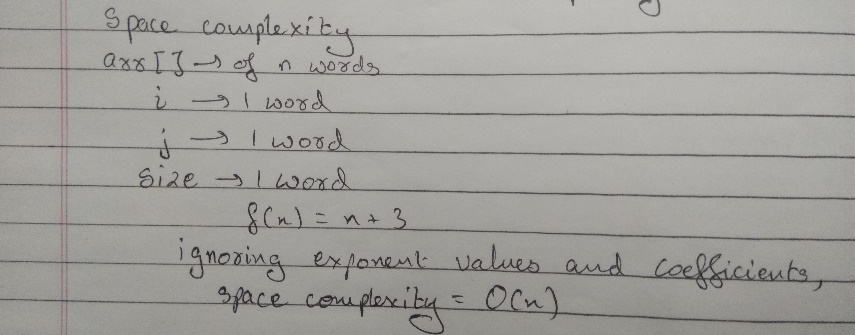 Space complexity
arr[] → of n words
i → 1 word
j → 1 word
size → 1 word
f(n) = n + 3
ignoring exponent values and coefficients,
space complexity = O(n)